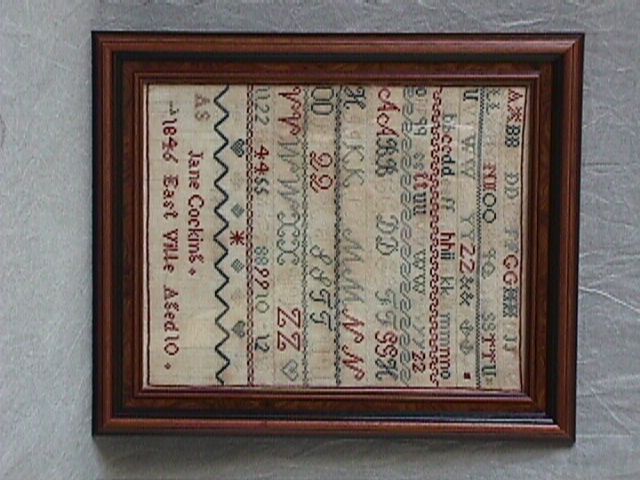 AABB DD FFGGHH JJ
NNOO QQ SSTTU
U WW YY ZZ&&
bbccdd ff hhii kk mmmno
o qq ssttuu ww yy zz
AABB DD FFGGH
H KK MMNN
OO QQ SSTT
VV WW XX ZZ
1122 4466 889910 12
AS
Jane Cocking
1846 East Ville Aged 10